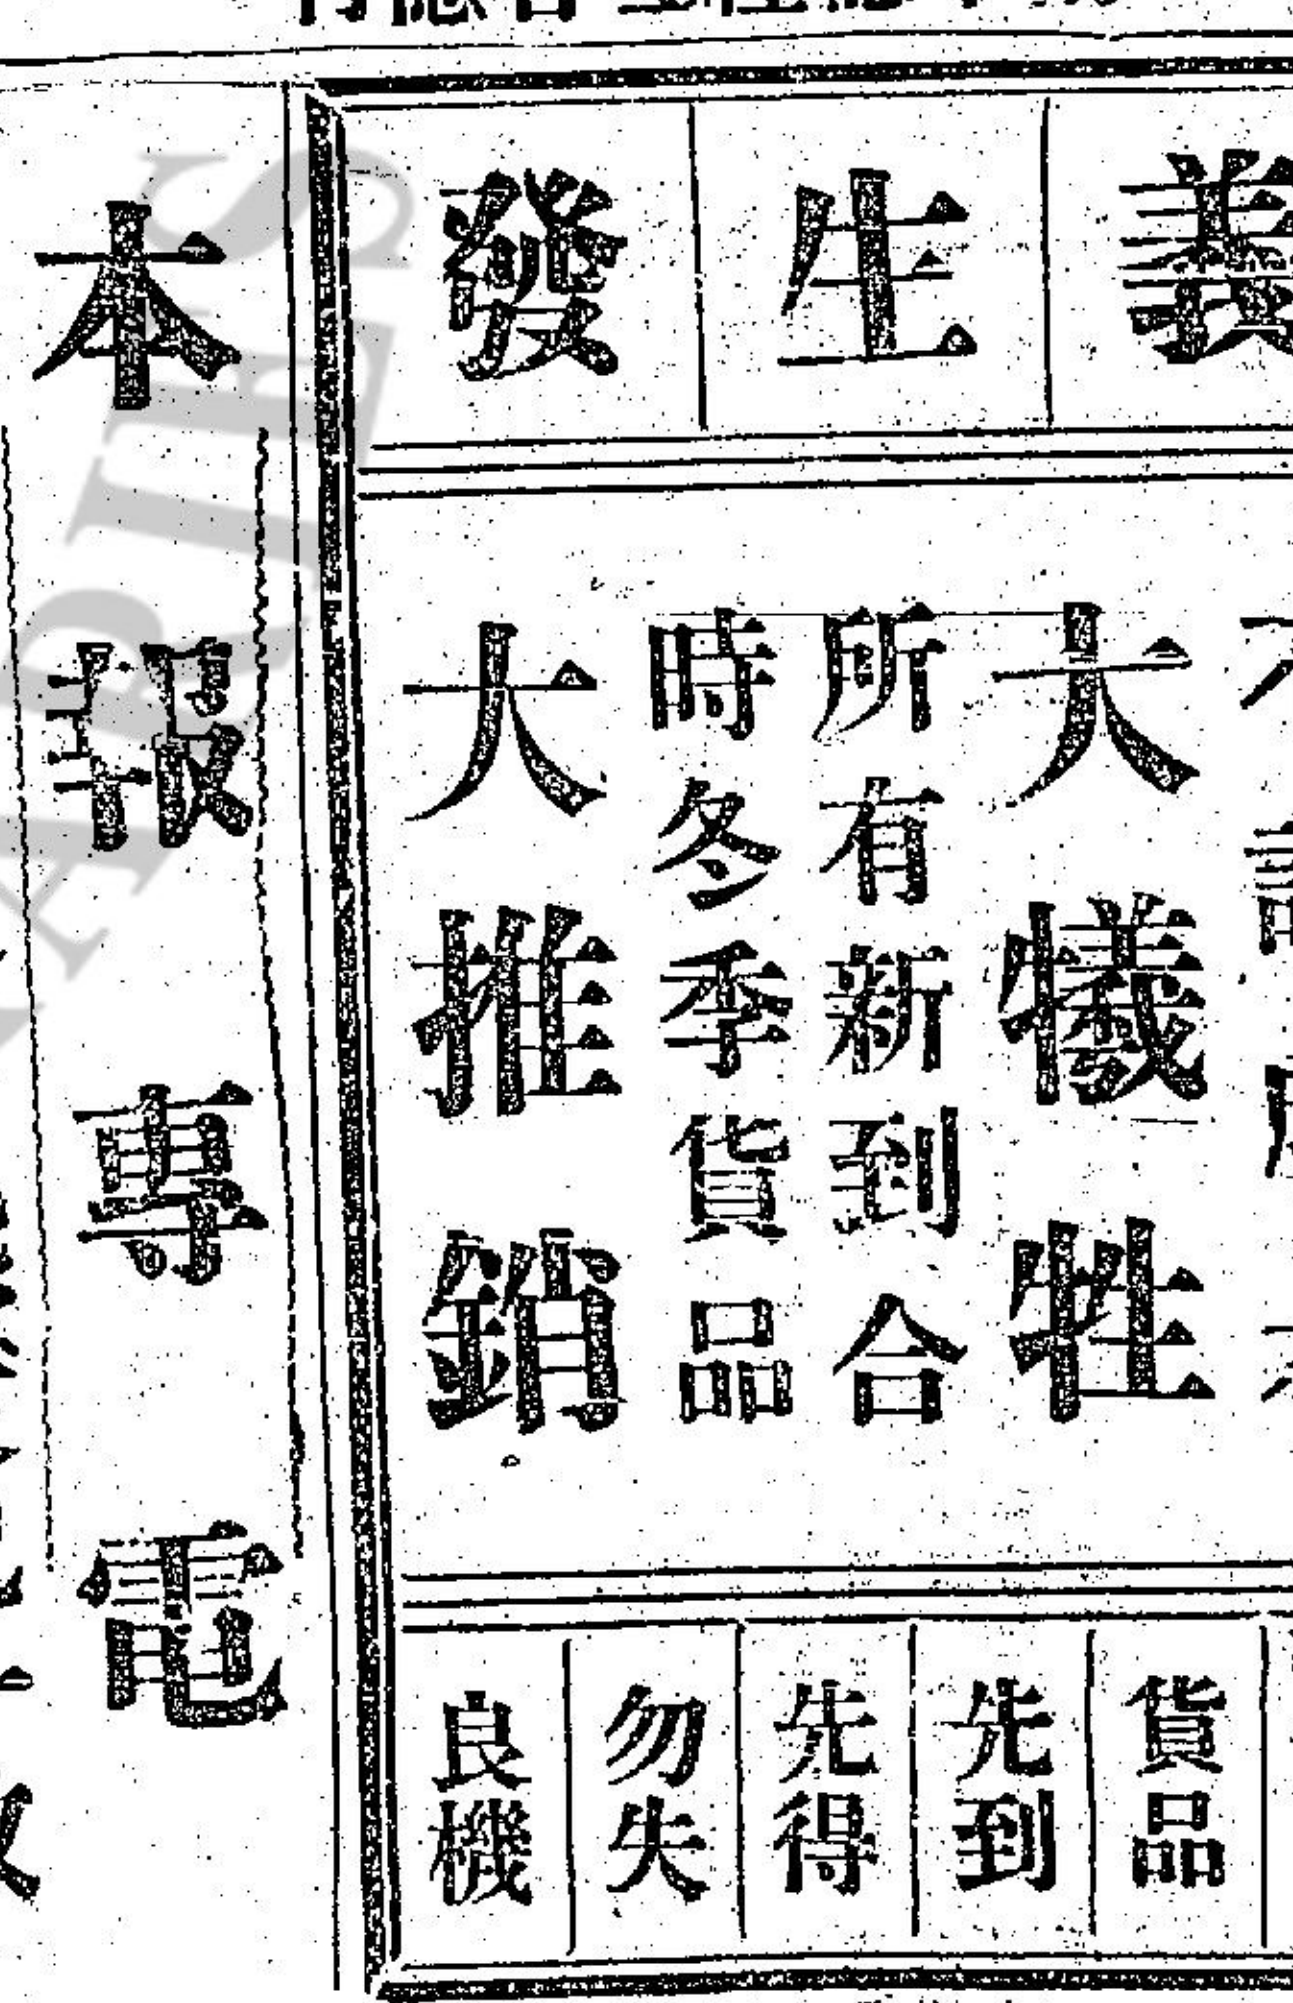 義生發
大犧牲
所有新到合
時冬季貨品
大推銷。
貨品
先到
先得
勿失
良機
本報專電